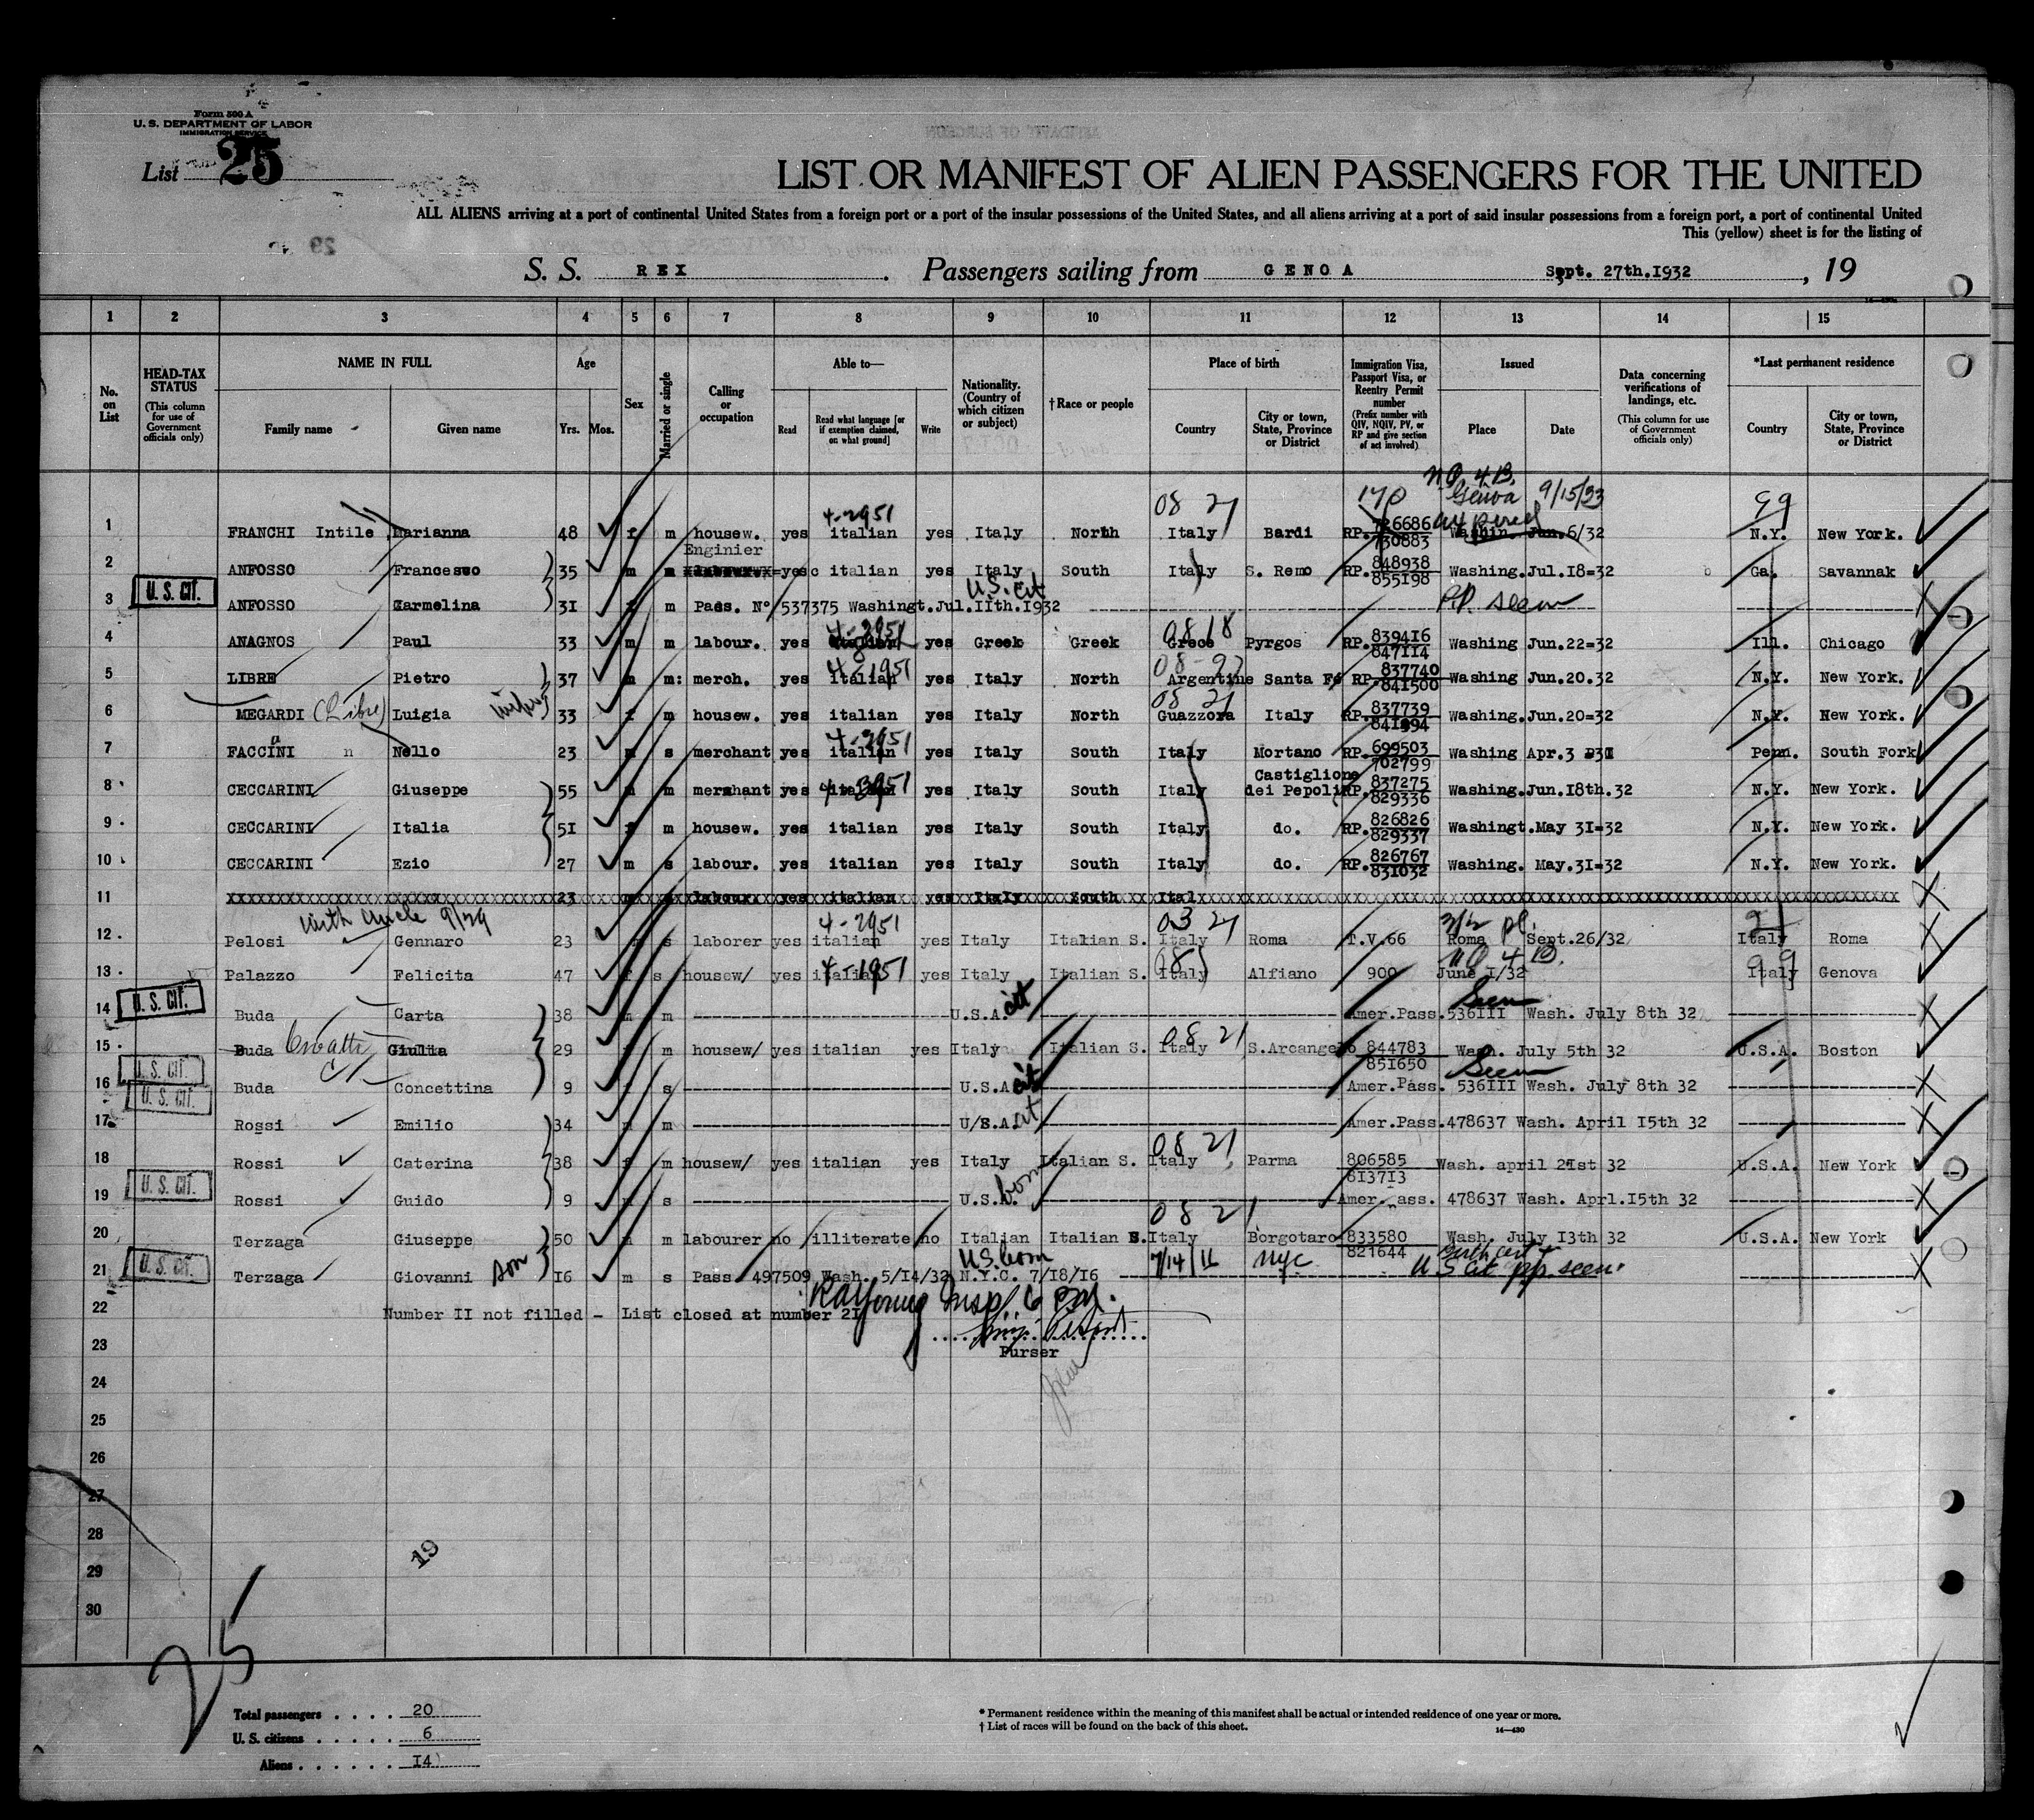 Form 500 A
U. S. DEPARTMENT OF LABOR
IMMIGRATION SERVICE
List 25
LIST OR MANIFEST OF ALIEN PASSENGERS FOR THE UNITED
ALL ALIENS arriving at a port of continental United States from a foreign port or a port of the insular possessions of the United States, and all aliens arriving at a port of said insular possessions from a foreign port, a port of continental United
This (yellow) sheet is for the listing of
S. S. REX. Passengers sailing from GENOA Sept. 27th.I932, 19
1 2 3 4 5 6 7 8 9 10 11 12 13 14 15
No. on List
HEAD-TAX STATUS (This column for use of Government officials only)
NAME IN FULL Family name Given name
Age Yrs. Mos.
Sex
Married or single
Calling or occupation
Able to— Read Read what language [or if exemption claimed, on what ground] Write
Nationality. (Country of which citizen or subject)
†Race or people
Place of birth Country City or town, State, Province or District
Immigration Visa, Passport Visa, or Reentry Permit number (Prefix number with QIV, NQIV, PV, or RP and give section of act involved)
Issued Place Date
Data concerning verifications of landings, etc. (This column for use of Government officials only)
*Last permanent residence Country City or town, State, Province or District
4-2951 08 21 Genoa 9/15/33 99
1 FRANCHI Intile Marianna 48 f m housew. yes italian yes Italy North Italy Bardi RP. 726686 730883 Washin. Jun.6/32 N.Y. New York.
Enginier
2 ANFOSSO Francesco 35 m m yes italian yes Italy South Italy S. Remo RP. 848938 855I98 Washing.Jul.I8=32 Ga. Savannak
U. S. CIT. U.S. cit
3 ANFOSSO Carmelina 3I f m Pass. N° 537375 Washingt.Jul.IIth.I932 P.P. seen
4-2951 0818
4 ANAGNOS Paul 33 m m labour. yes italian yes Greek Greek Grece Pyrgos RP. 8394I6 847II4 Washing Jun.22=32 Ill. Chicago
4-1951
5 LIBRE Pietro 37 m m: merch. yes italian yes Italy North Argentine Santa Fé RP. 837740 84I500 Washing Jun.20.32 N.Y. New York.
08 21
6 MEGARDI (Libre) Luigia wife 33 f m housew. yes italian yes Italy North Guazzora Italy RP. 837739 Washing.Jun.20=32 N.Y. New York.
4-2951
7 FACCINI Nello 23 m s merchant yes italian yes Italy South Italy Mortano RP. 699503 702799 Washing Apr.3 Penn. South Fork
Castiglione
8 CECCARINI Giuseppe 55 m m merchant yes italian yes Italy South Italy dei Pepoli RP. 837275 829336 Washing.Jun.I8th.32 N.Y. New York.
9 CECCARINI Italia 5I f m housew. yes italian yes Italy South Italy do. RP. 826826 829337 Washingt.May 3I=32 N.Y. New York.
10 CECCARINI Ezio 27 m s labour. yes italian yes Italy South Italy do. RP. 826767 83I032 Washing. May.3I=32 N.Y. New York.
11 23 labour. yes italian yes Italy South Ital
with uncle 9/29 4-2951 03 21
12 Pelosi Gennaro 23 s laborer yes italian yes Italy Italian S. Italy Roma T.V.66 Roma Sept.26/32 Italy Roma
4-1951 99
13 Palazzo Felicita 47 f s housew/ yes italian yes Italy Italian S. Italy Alfiano 900 June I/32 Italy Genova
U. S. CIT. cit Seen
14 Buda Carta 38 m m U.S.A. Amer.Pass.536III Wash. July 8th 32
08 21
15 Buda Giulia 29 f m housew/ yes italian yes Italy Italian S. Italy S.Arcangelo 844783 85I650 Wash. July 5th 32 U.S.A. Boston
U. S. CIT. cit Seen
16 Buda Concettina 9 f s U.S.A. Amer.Pass. 536III Wash. July 8th 32
U. S. CIT. cit
17 Rossi Emilio 34 m m U/S.A. Amer.Pass.478637 Wash. April I5th 32
08 21
18 Rossi Caterina 38 f m housew/ yes italian yes Italy Italian S. Italy Parma 806585 6I37I3 Wash. april 2Ist 32 U.S.A. New York
U. S. CIT. born
19 Rossi Guido 9 m s U.S.A. Amer. ass. 478637 Wash. Aprl.I5th 32
08 21
20 Terzaga Giuseppe 50 m m labourer no illiterate no Italian Italian S. Italy Borgotaro 833580 82I644 Wash. July I3th 32 U.S.A. New York
U. S. CIT. U.S. born birth cert +
21 Terzaga Giovanni son I6 m s Pass. 497509 Wash. 5/I4/32 N.Y.C. 7/I8/I6 7/14/16 nyc U S cit pp seen.
22 Number II not filled - List closed at number 2I
23 Purser
24
25
26
27
28
29
30
19
25
Total passengers . . . . 20
U. S. citizens . . . . . 6
Aliens . . . . . . I4
* Permanent residence within the meaning of this manifest shall be actual or intended residence of one year or more.
† List of races will be found on the back of this sheet. 14—430